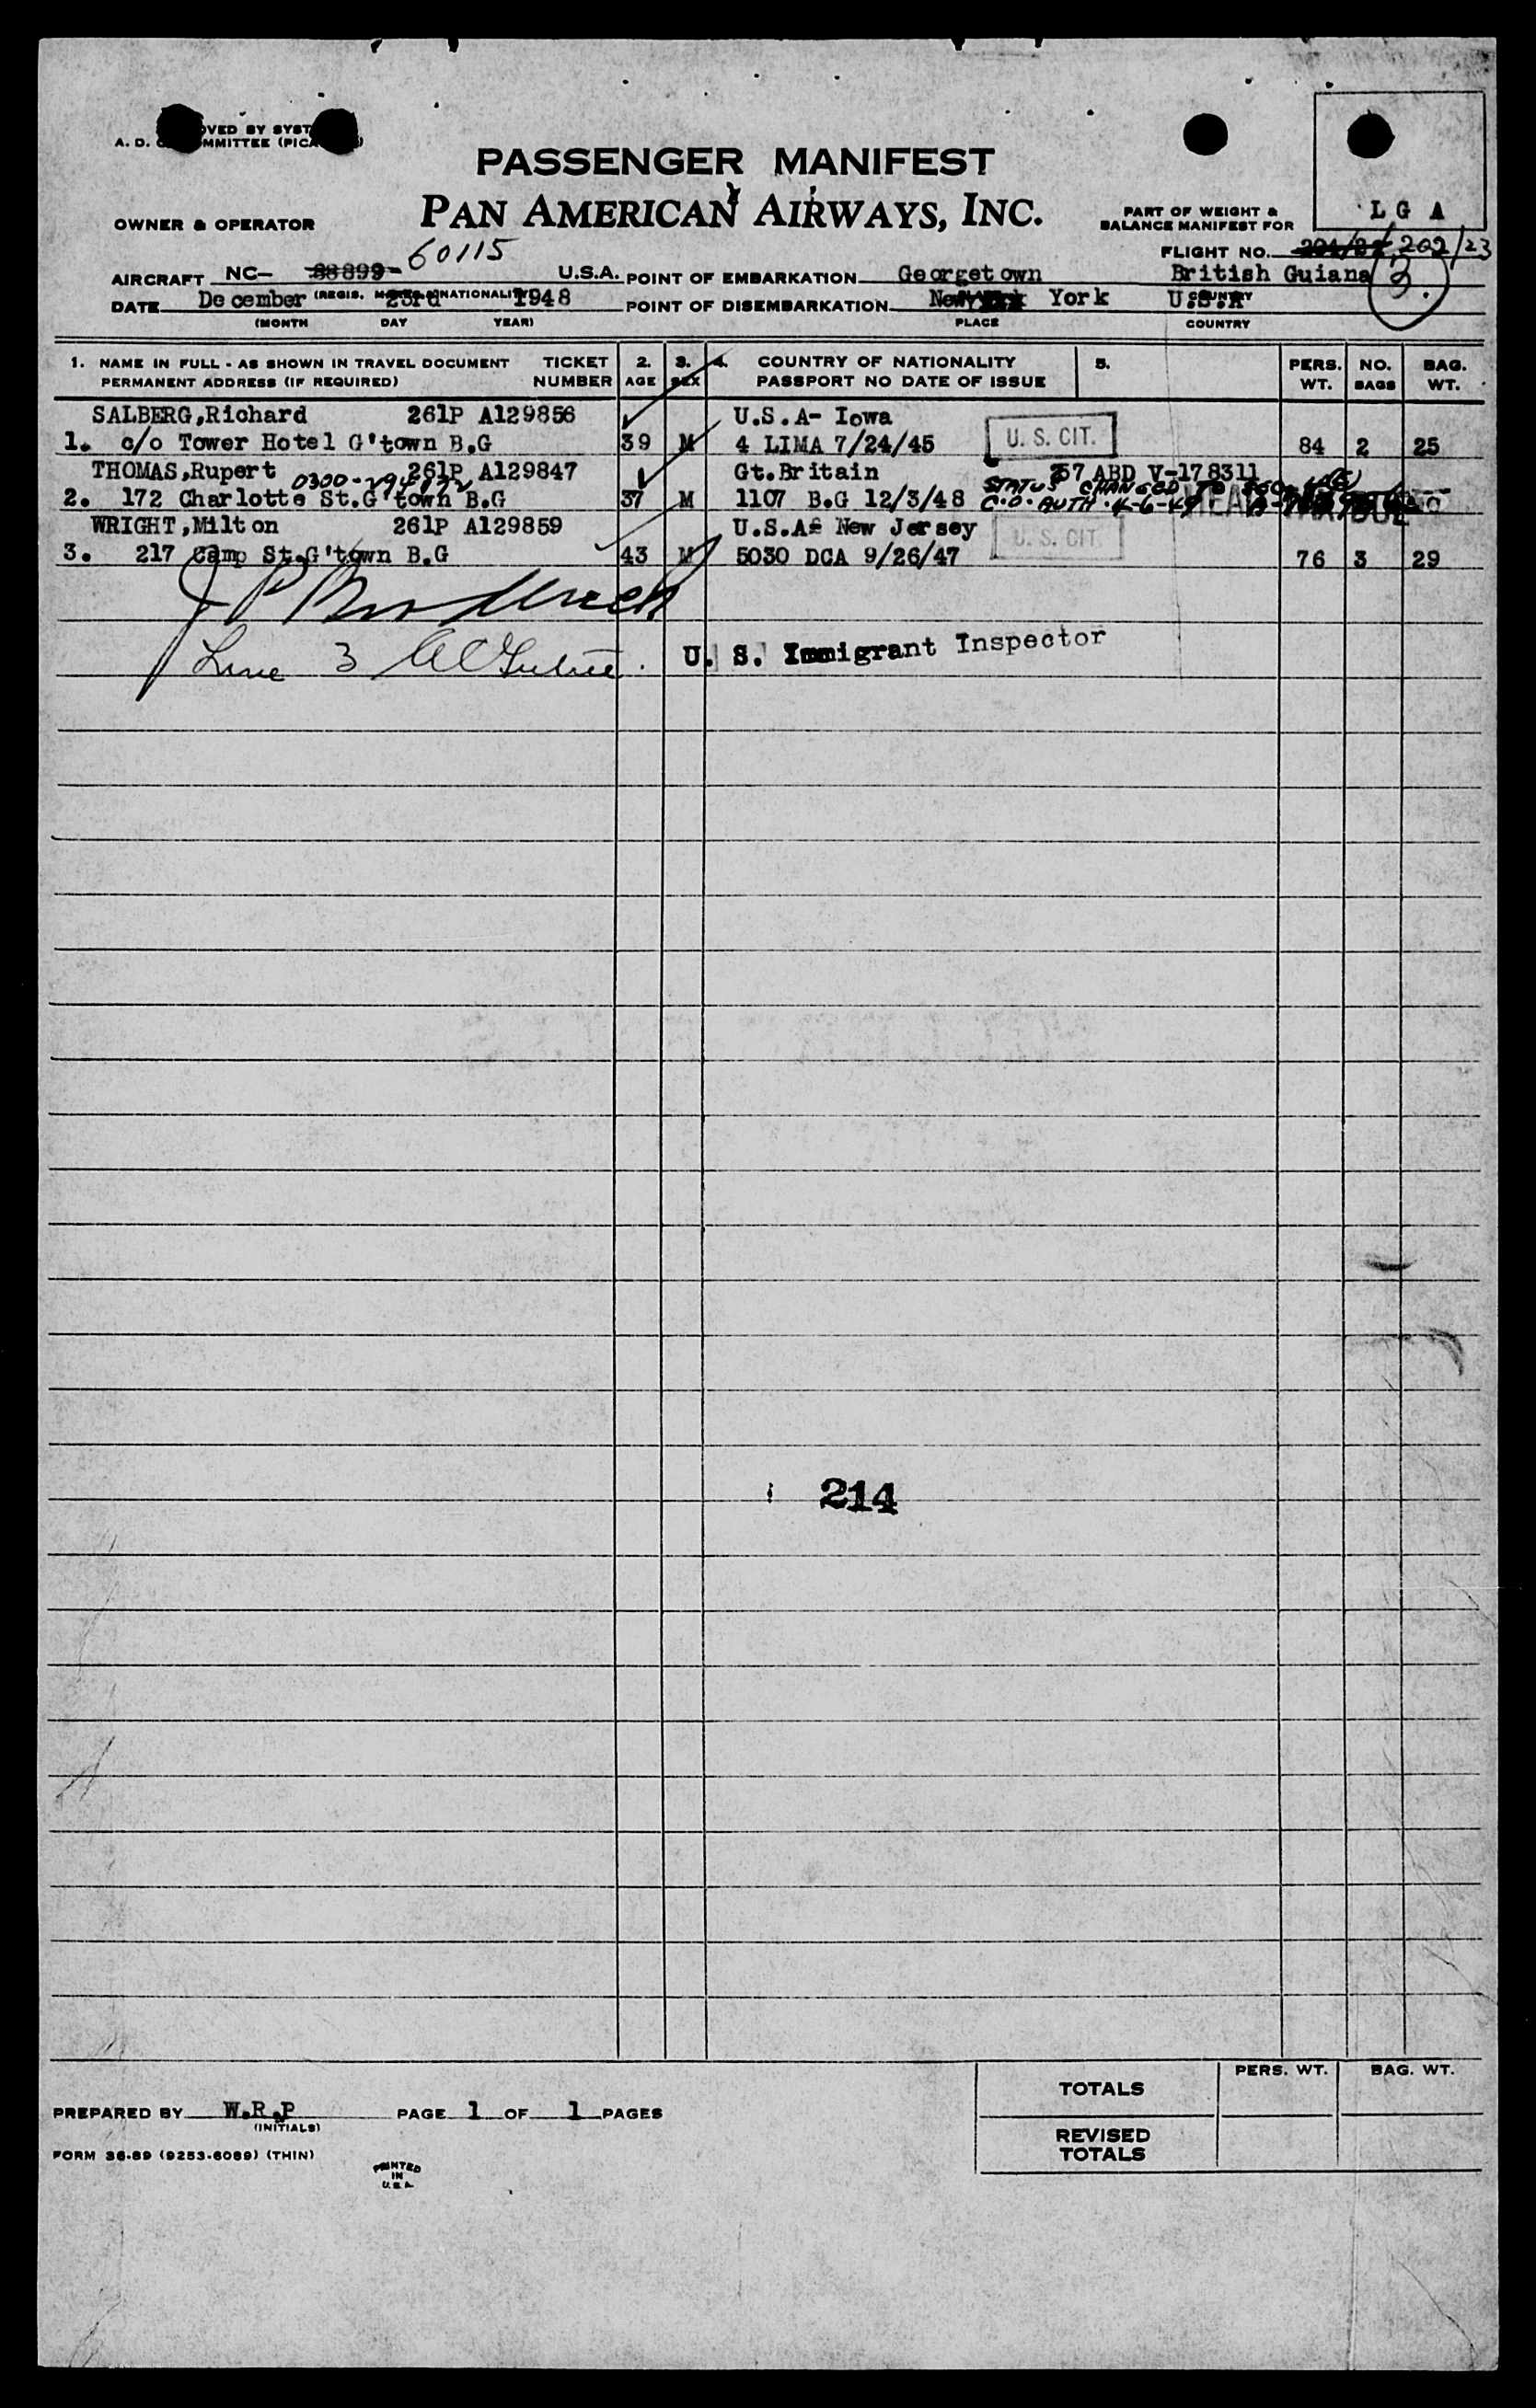 A. D.
PASSENGER MANIFEST
PAN AMERICAN AIRWAYS, INC.
OWNER & OPERATOR
PART OF WEIGHT &
BALANCE MANIFEST FOR
L G A
FLIGHT NO. 202/23
AIRCRAFT NC- 88899- 60115 U.S.A. POINT OF EMBARKATION Georgetown British Guiana 3.
DATE December 23rd 1948 POINT OF DISEMBARKATION New York U.S.A
(MONTH DAY YEAR) PLACE COUNTRY
1. NAME IN FULL - AS SHOWN IN TRAVEL DOCUMENT TICKET 2. 3. 4. COUNTRY OF NATIONALITY 5. PERS. NO. BAG.
PERMANENT ADDRESS (IF REQUIRED) NUMBER AGE SEX PASSPORT NO DATE OF ISSUE WT. BAGS WT.
SALBERG,Richard 261P A129856 U.S.A- Iowa
1. c/o Tower Hotel G'town B.G 39 M 4 LIMA 7/24/45 U. S. CIT. 84 2 25
THOMAS,Rupert 261P A129847 Gt.Britain 257 ABD V-178311
2. 172 Charlotte St.G'town B.G 37 M 1107 B.G 12/3/48 STATUS CHANGED TO
C.O. AUTH. 4-6-49
WRIGHT,Milton 261P A129859 U.S.A- New Jersey
3. 217 Camp St.G'town B.G 43 M 5030 DCA 9/26/47 U. S. CIT. 76 3 29
Line 3
U. S. Immigrant Inspector
214
TOTALS PERS. WT. BAG. WT.
PREPARED BY W.R.P PAGE 1 OF 1 PAGES
(INITIALS)
REVISED
TOTALS
FORM 36-89 (9253-6089) (THIN)
PRINTED
IN
U.S.A.